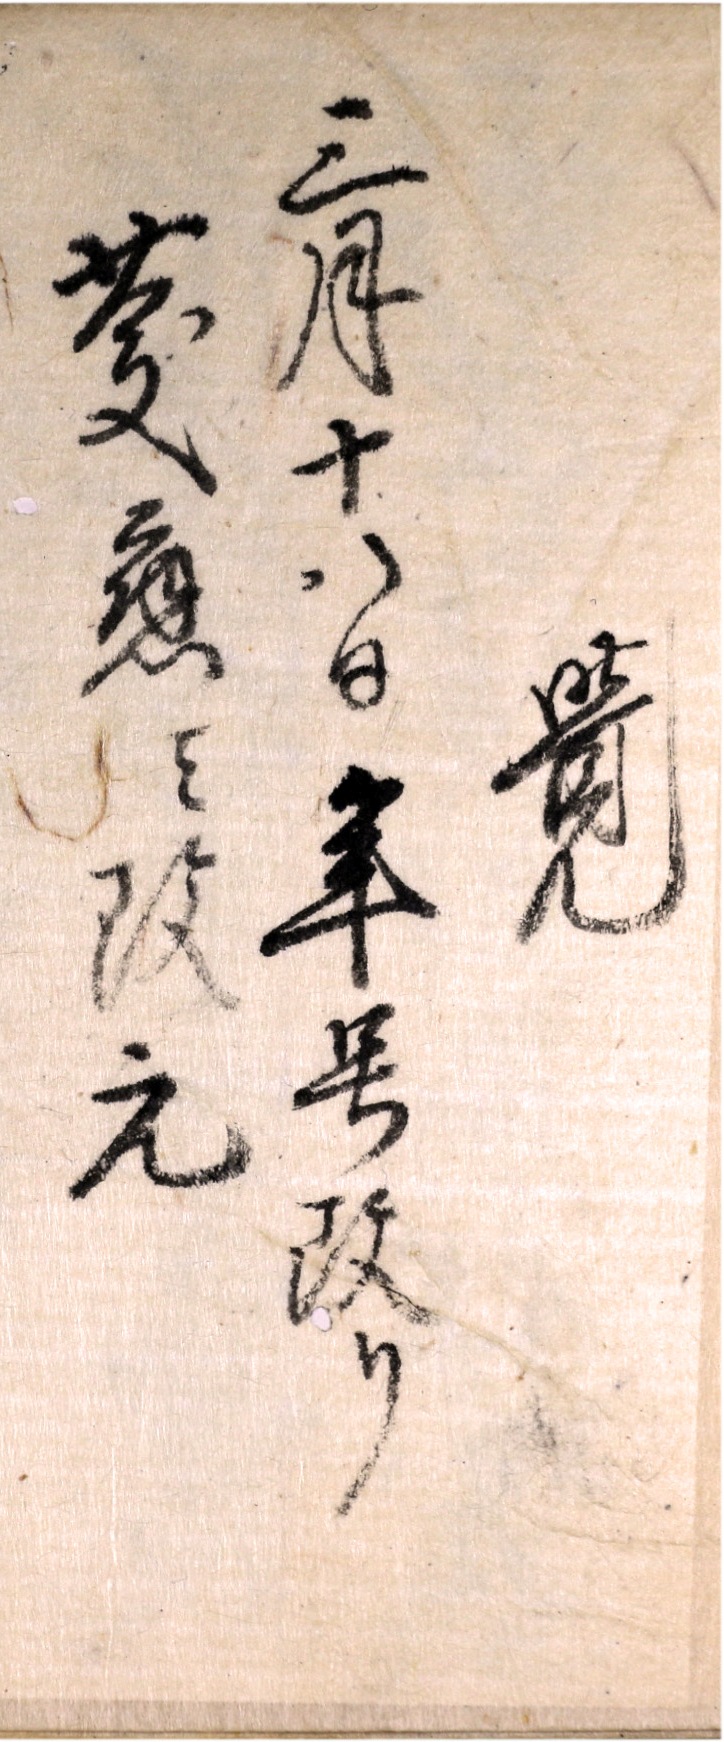 覚
三月十八日年号改り
慶應ニ改元